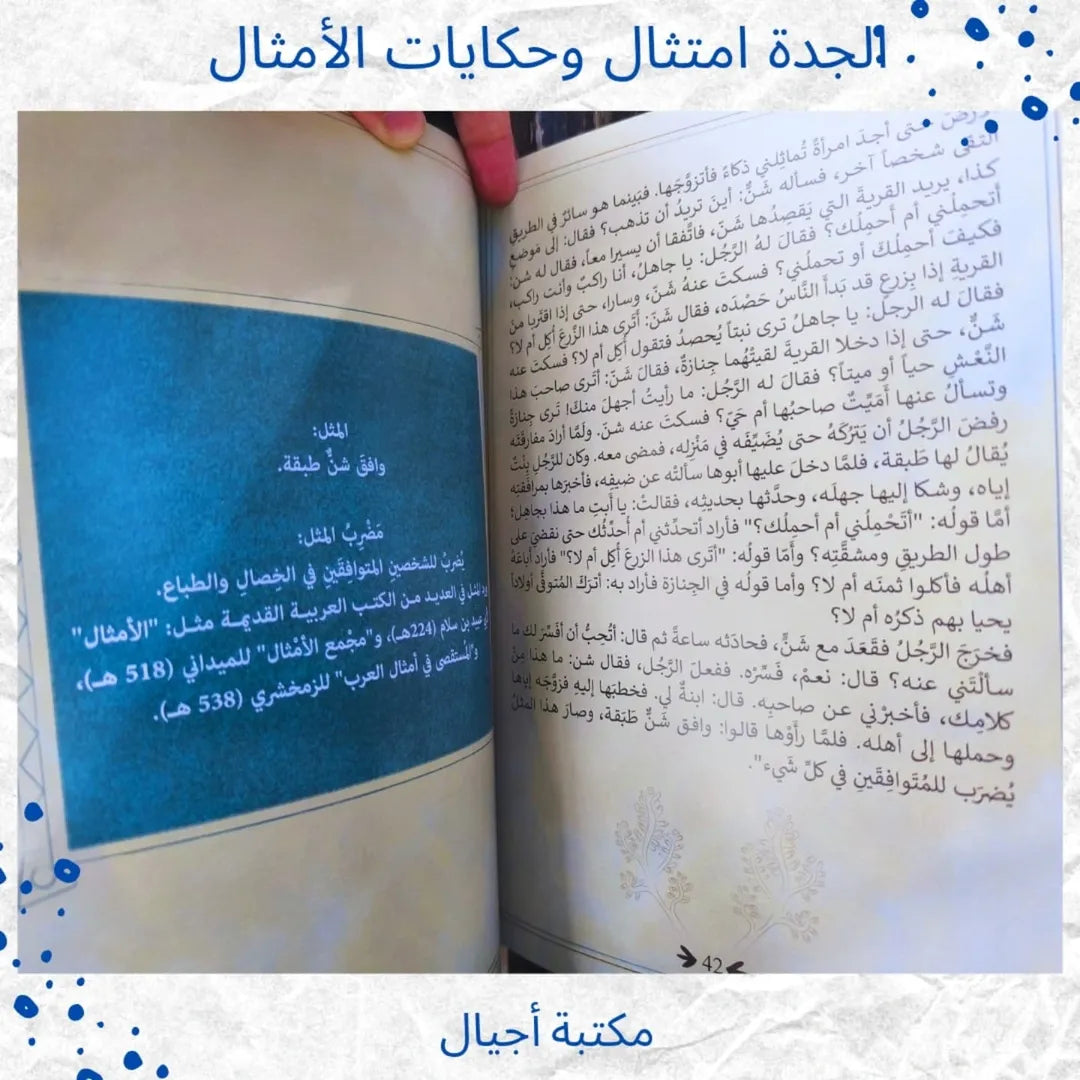 الجدة امتثال وحكايات الأمثال
حتى أجدَ امرأةً تُماثِلني ذكاءً فأتزوَّجَها. فبَينما هو سائرٌ في الطريقِ
التقى شخصاً آخر، فسأله شَنٌّ: أينَ تريدُ أن تذهب؟ فقال: إلى مَوضعِ
كذا، يريد القريةَ التي يَقصِدُها شَنّ، فاتَّفقا أن يسيرا معاً، فقال له شن:
أتحمِلُني أم أحمِلُك؟ فقالَ لهُ الرَّجُل: يا جاهلُ، أنا راكبٌ وأنت راكب،
فكيفَ أحمِلُكَ أو تحملُني؟ فسكتَ عنهُ شَنّ، وسارا، حتى إذا اقتَربا منَ
القريةِ إذا بِزرعٍ قد بَدأَ النَّاسُ حَصْدَه، فقال شَنّ: أَتَرى هذا الزَّرعَ أُكِل أم لا؟
فقالَ له الرجل: يا جاهلُ ترى نبتاً يُحصدُ فتقول أُكِل أم لا؟ فسكتَ عنه
شَنٌّ، حتى إذا دخلا القريةَ لقيتْهُما جِنازةٌ، فقالَ شَنّ: أتَرى صاحبَ هذا
النَّعْشِ حياً أو ميتاً؟ فقالَ له الرَّجُل: ما رأيتُ أجهلَ منكَ! تَرى جِنازةً
وتسألُ عنها أمَيِّتٌ صاحبُها أم حَيّ؟ فسكتَ عنه شنّ. ولَمَّا أرادَ مفارقَتَه
رفضَ الرَّجُلُ أن يَترُكَهُ حتى يُضَيِّفَه في مَنْزِلِه، فمضى معه. وكان للرَّجُلِ بِنْتٌ
يُقالُ لها طَبقة، فلمَّا دخلَ عليها أبوها سألتْه عن ضيفِه، فأخبرَها بمرافقتِه
إياه، وشكا إليها جهلَه، وحدَّثها بحديثِه، فقالتْ: يا أبَتِ ما هذا بجاهِل؛
أمَّا قولُه: "أتَحْمِلُني أم أحملُك؟" فأراد أتحدِّثني أم أُحدِّثُك حتى نقضيَ على
طول الطريقِ ومشقَّتِه؟ وأمَّا قولُه: "أتَرى هذا الزرعَ أُكِل أم لا؟" فأراد أباعَهُ
أهلُه فأكلوا ثمنَه أم لا؟ وأما قولُه في الجِنازة فأراد به: أترَكَ المُتوفَّى أولاداً
يحيا بهم ذكرُه أم لا؟
فخرَجَ الرَّجُل فقَعَدَ مع شَنٍّ، فحادَثه ساعةً ثم قال: أتُحِبُّ أن أفسِّرَ لك ما
سألتَني عنه؟ قال: نعمْ، فَسِّرْه. ففعلَ الرَّجُل، فقال شن: ما هذا مِنْ
كلامِك، فأخبرْني عن صاحبِه. قال: ابنةٌ لي. فخطبَها إليهِ فزوَّجَه إياها
وحملها إلى أهله. فلمَّا رأَوْها قالوا: وافق شَنٌّ طَبَقة، وصارَ هذا المثلُ
يُضرَب للمُتَوافِقَينِ في كلِّ شَيء".
42
المثل:
وافقَ شنٌّ طبقة.
مَضْرِبُ المثل:
يُضرَبُ للشخصينِ المتوافقَينِ في الخِصالِ والطباع.
المثل في العديد من الكتب العربية القديمة مثل: "الأمثال"
عبيد بن سلام (224هـ)، و"مجْمع الأمْثال" للميداني (518 هـ)،
و"المُستقصى في أمثال العرب" للزمخشري (538 هـ).
مكتبة أجيال